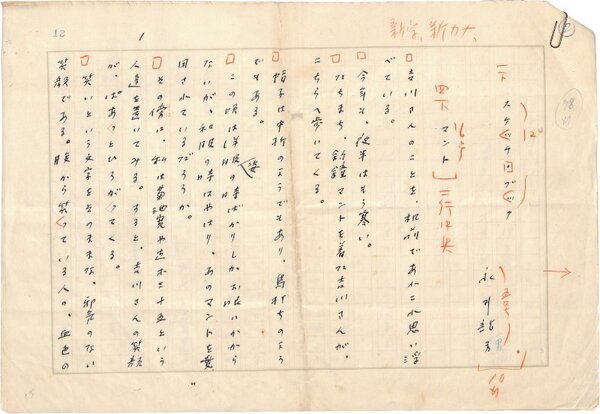 新字、新カナ
12
一下
スケッチ・ブック
12º
永井龍男
五号
四下
マント
16ポ
二行中央
吉川さんのことを、机前であれこれ思い浮
べている。
今年も、夜半はもう寒い。
たちまち、釣鐘マントを着た吉川さんが、
こちらへ歩いてくる。
帽子は中折のようでもあり、鳥打ちのよう
でもある。
この頃は洋服の時ばかりしかお長いから
ないが、和服の時はやはり、あのマントを
用されているだろうか。
その傍に、私は菊地寛や直木三十五という
人達を置いてみる。すると、吉川さんの笑顔
が、ぱあっとひろがってくる。
笑いという文字をそのままな、邪気のない
笑顔である。腹から笑っている人の、血色の